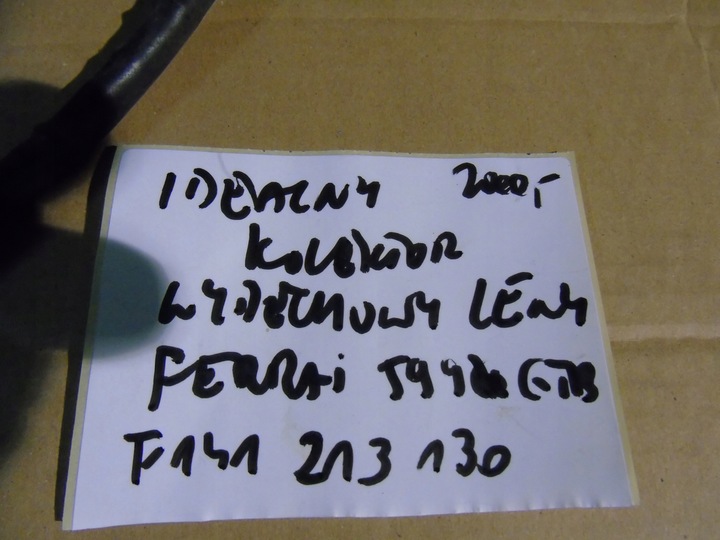 IDEALNY 2000,-
KOLEKTOR
WYDECHOWY LEWY
FERRAI 599 GTB
F141 213130